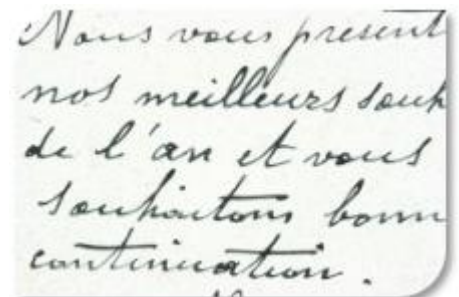 Nous vous présent
nos meilleurs souh
de l'an et vous
souhaitons bonn
continuation.